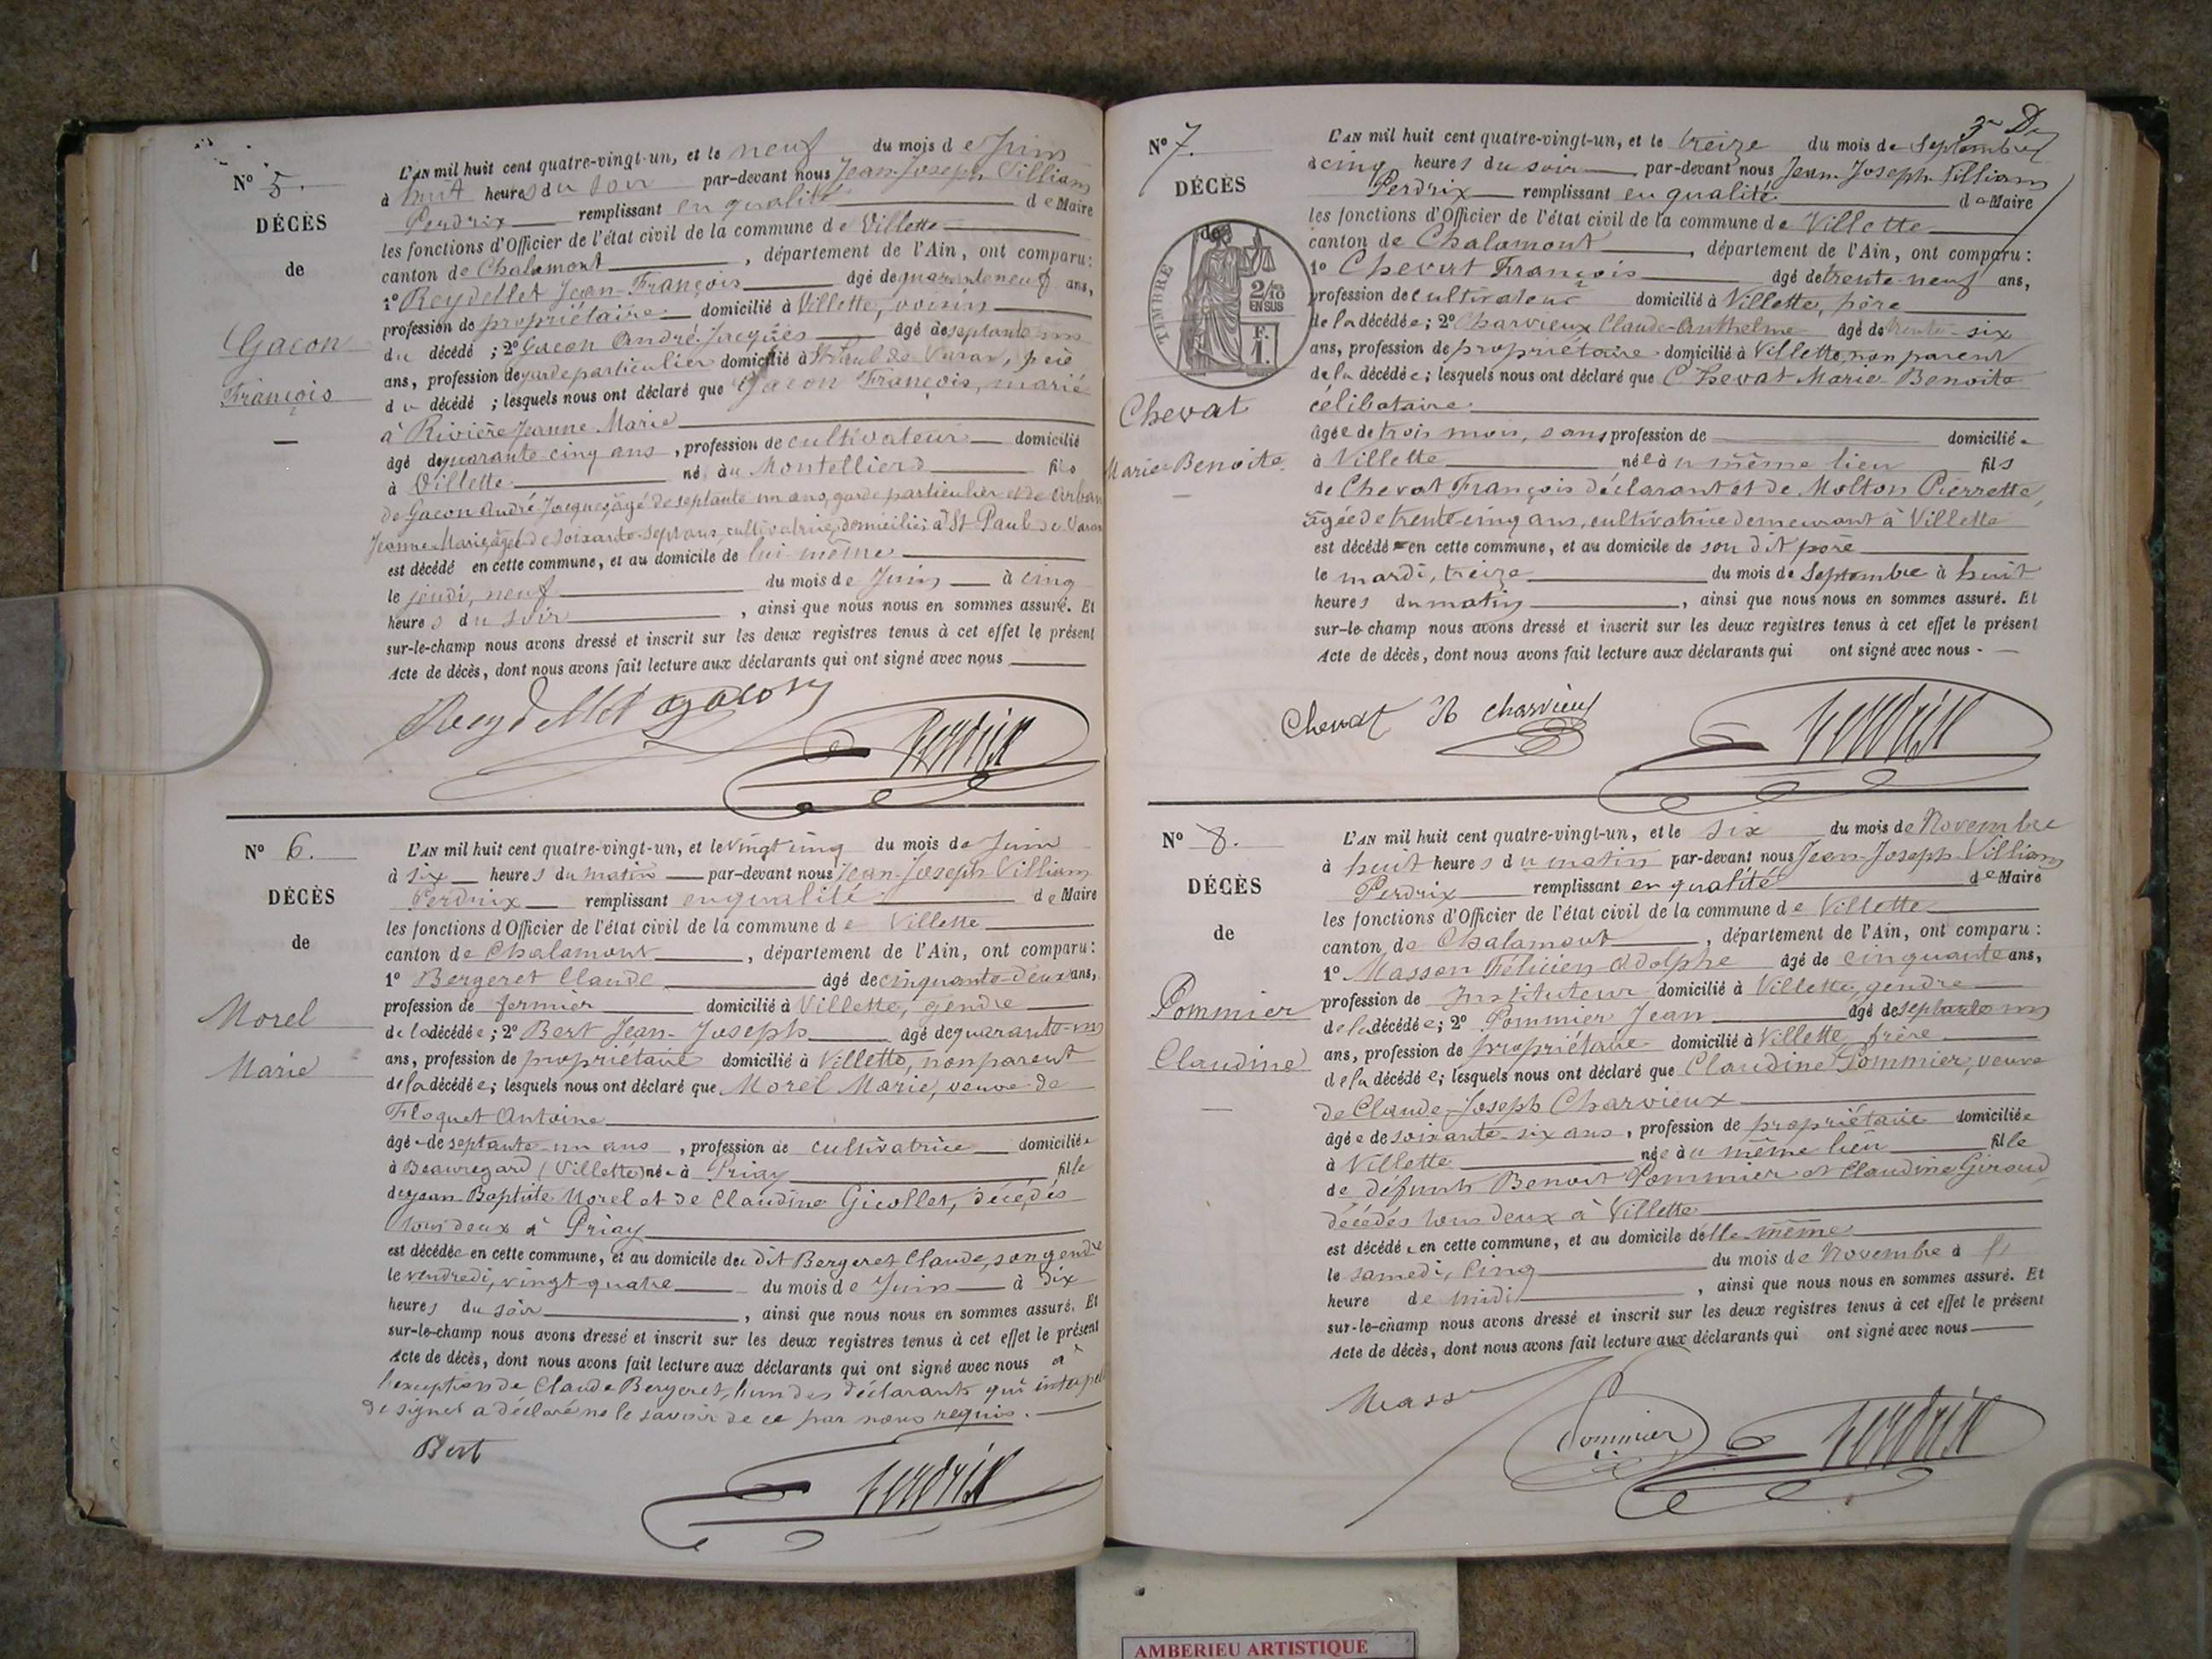 N° 5.
DÉCÈS
de
Gacon
François
L'AN mil huit cent quatre-vingt-un, et le neuf du mois de Juin
à huit heures du soir par-devant nous Jean-Joseph Villiam
Perdrix remplissant en qualité de Maire
les fonctions d'Officier de l'état civil de la commune de Villette
canton de Chalamont, département de l'Ain, ont comparu:
1° Reydellet Jean-François âgé de quarante neuf ans,
profession de propriétaire domicilié à Villette, voisin
du décédé ; 2° Gacon André Jacques âgé de septante un
ans, profession de garde particulier domicilié à St Paul de Varax, père
du décédé ; lesquels nous ont déclaré que Gacon François, marié
à Rivière Jeanne Marie
âgé de quarante cinq ans, profession de cultivateur domicilié
à Villette né au Montellier fils
de Gacon André Jacques, âgé de septante un ans, garde particulier et de Arban
Jeanne Marie, âgée de soixante-sept ans, cultivatrice, domiciliés à St Paul de Varax
est décédé en cette commune, et au domicile de lui même
le jeudi, neuf du mois de Juin à cinq
heures du soir, ainsi que nous nous en sommes assuré. Et
sur-le-champ nous avons dressé et inscrit sur les deux registres tenus à cet effet le présent
Acte de décès, dont nous avons fait lecture aux déclarants qui ont signé avec nous
Reydellet gacon Perdrix
N° 6.
DÉCÈS
de
Morel
Marie
L'AN mil huit cent quatre-vingt-un, et le vingt cinq du mois de Juin
à six heures du matin par-devant nous Jean-Joseph Villiam
Perdrix remplissant en qualité de Maire
les fonctions d'Officier de l'état civil de la commune de Villette
canton de Chalamont, département de l'Ain, ont comparu:
1° Bergeret Claude âgé de cinquante-deux ans,
profession de fermier domicilié à Villette, gendre
de la décédée; 2° Bert Jean-Joseph âgé de quarante-un
ans, profession de propriétaire domicilié à Villette, non parent
de la décédée; lesquels nous ont déclaré que Morel Marie, veuve de
Floquet Antoine
âgée de septante un ans, profession de cultivatrice domiciliée
à Beauregard (Villette) née à Priay fille
de Jean-Baptiste Morel et de Claudine Gicollet, décédés
tous deux à Priay
est décédée en cette commune, et au domicile du dit Bergeret Claude, son gendre
le vendredi, vingt-quatre du mois de Juin à dix
heures du soir, ainsi que nous nous en sommes assuré. Et
sur-le-champ nous avons dressé et inscrit sur les deux registres tenus à cet effet le présent
Acte de décès, dont nous avons fait lecture aux déclarants qui ont signé avec nous à
l'exception de Claude Bergeret, l'un des déclarants qui interpellé
de signer a déclaré ne le savoir de ce par nous requis.
Bert Perdrix
N° 7.
DÉCÈS
de
TIMBRE
2/10
EN SUS
F.
1.
Chevat
Marie-Benoite
L'AN mil huit cent quatre-vingt-un, et le treize du mois de Septembre
à cinq heures du soir par-devant nous Jean-Joseph Villiam
Perdrix remplissant en qualité de Maire
les fonctions d'Officier de l'état civil de la commune de Villette
canton de Chalamont, département de l'Ain, ont comparu:
1° Chevat François âgé de trente-neuf ans,
profession de cultivateur domicilié à Villette, père
de la décédée; 2° Charvieux Claude-Anthelme âgé de trente-six
ans, profession de propriétaire domicilié à Villette, non parent
de la décédée; lesquels nous ont déclaré que Chevat Marie Benoite
célibataire
âgée de trois mois, sans profession de domiciliée
à Villette née au même lieu fils
de Chevat François déclarant et de Molton Pierrette,
âgée de trente cinq ans, cultivatrice demeurant à Villette
est décédée en cette commune, et au domicile de son dit père
le mardi, treize du mois de Septembre à huit
heures du matin, ainsi que nous nous en sommes assuré. Et
sur-le-champ nous avons dressé et inscrit sur les deux registres tenus à cet effet le présent
Acte de décès, dont nous avons fait lecture aux déclarants qui ont signé avec nous
Chevat charvieux Perdrix
N° 8.
DÉCÈS
de
Pommier
Claudine
L'AN mil huit cent quatre-vingt-un, et le six du mois de Novembre
à huit heures du matin par-devant nous Jean-Joseph Villiam
Perdrix remplissant en qualité de Maire
les fonctions d'Officier de l'état civil de la commune de Villette
canton de Chalamont, département de l'Ain, ont comparu:
1° Masson Félicien Adolphe âgé de cinquante ans,
profession de Instituteur domicilié à Villette, gendre
de la décédée; 2° Pommier Jean âgé de septante un
ans, profession de propriétaire domicilié à Villette, frère
de la décédée; lesquels nous ont déclaré que Claudine Pommier, veuve
de Claude-Joseph Charvieux
âgée de soixante-six ans, profession de propriétaire domiciliée
à Villette née au même lieu fille
de défunts Benoit Pommier et Claudine Giroud
décédés tous deux à Villette
est décédée en cette commune, et au domicile d'elle même
le samedi, cinq du mois de Novembre à
heure de midi, ainsi que nous nous en sommes assuré. Et
sur-le-champ nous avons dressé et inscrit sur les deux registres tenus à cet effet le présent
Acte de décès, dont nous avons fait lecture aux déclarants qui ont signé avec nous
Mass Pommier Perdrix
AMBERIEU ARTISTIQUE